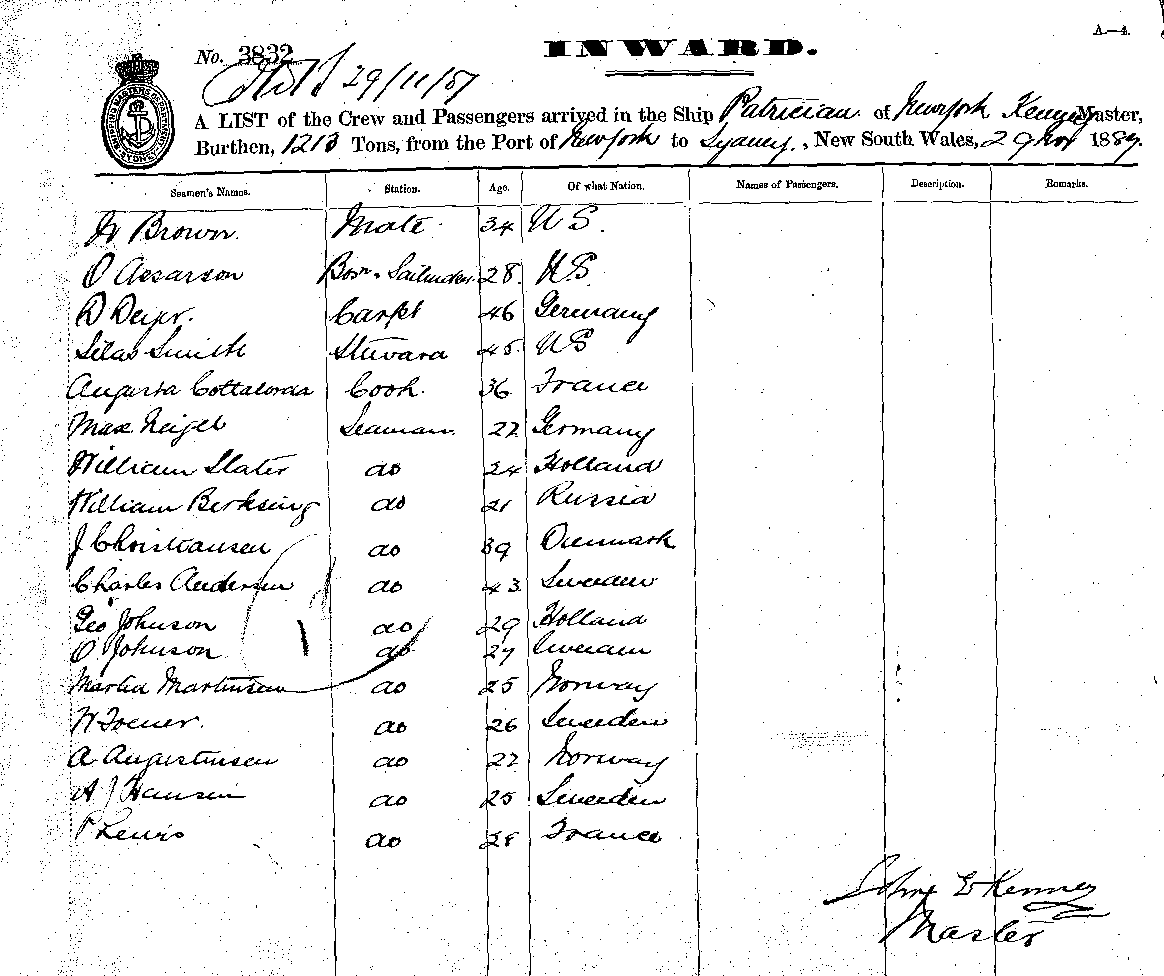 A.—4.
INWARD.
No. 3832
29/11/87
A LIST of the Crew and Passengers arrived in the Ship Patrician of New York Kenney Master,
Burthen, 1213 Tons, from the Port of New York to Sydney, New South Wales, 29 Nov 1887.
Seamen's Names. Station. Age. Of what Nation. Names of Passengers. Description. Remarks.
W Brown. Mate. 34 U S.
O Assarson Bosn & Sailmaker 28. U S.
D Carpt 46 Germany
Silas Smith Steward 45. U S
Augusta Cook. 36 France
Max Seaman. 22 Germany
William Slater do 24 Holland
William Berksing do 21 Russia
J Christiansen do 39 Denmark
Charles Andersen do 43 Sweden
Geo Johnson do 29 Holland
O Johnson do 27 Sweden
Martin Martinsen do 25 Norway
W do 26 Sweeden
A Augustinsen do 22 Norway
A J Hansen do 25 Sweeden
P Lewis do 28 France
John E Kenney
Master